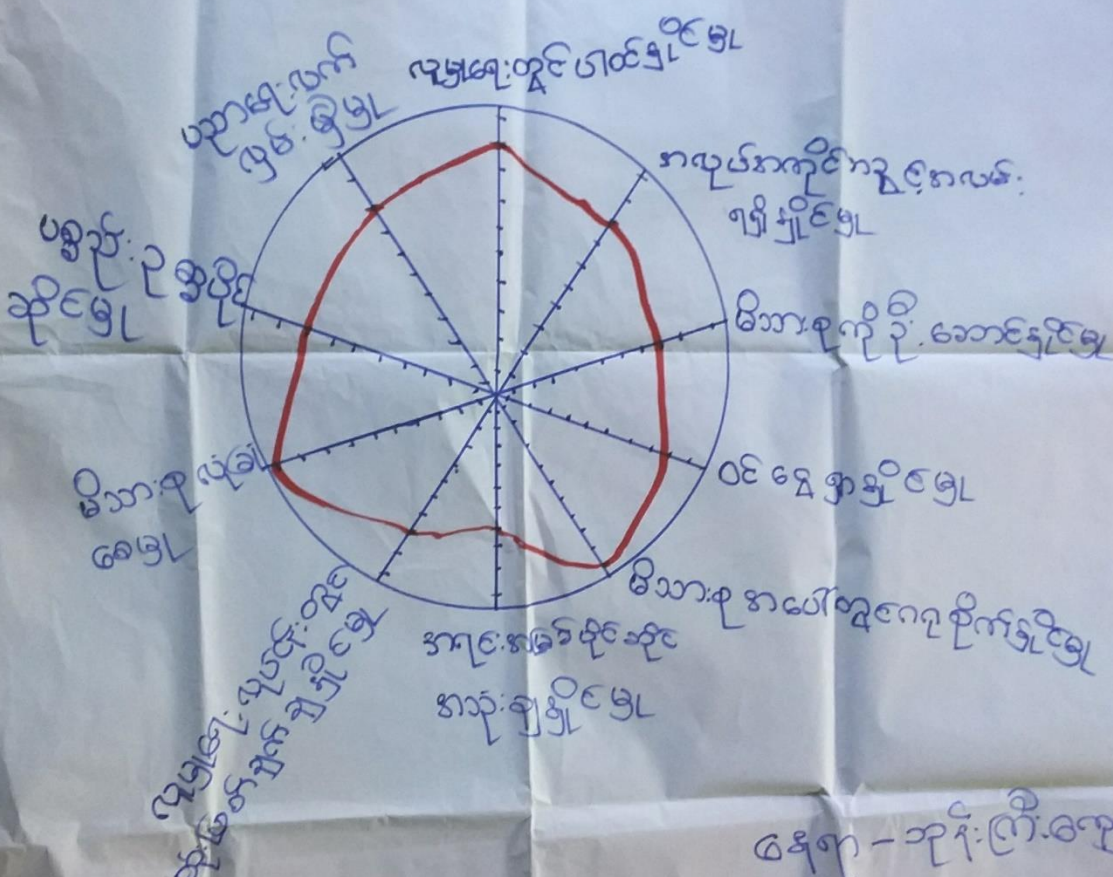 လူမှုရေးတွင်ပါဝင်နိုင်မှု
အလုပ်အကိုင်အခွင့်အလမ်း
ရရှိနိုင်မှု
မိသားစုကိုဦးဆောင်နိုင်မှု
ဝင်ငွေရှာနိုင်မှု
မိသားစုအပေါ်တွင်ဂရုစိုက်နိုင်မှု
အရင်းအမြစ်ပိုင်ဆိုင်
အသုံးချနိုင်မှု
လူမှုရေးလုပ်ငန်းတွင်
ဆုံးဖြတ်ချက်ချနိုင်မှု
မိသားစုလုံခြုံ
စေမှု
ပစ္စည်းဥစ္စာပိုင်
ဆိုင်မှု
ပညာရေးလက်
လှမ်းမှီမှု
နေရာ - ဘုန်းကြီးလှေ